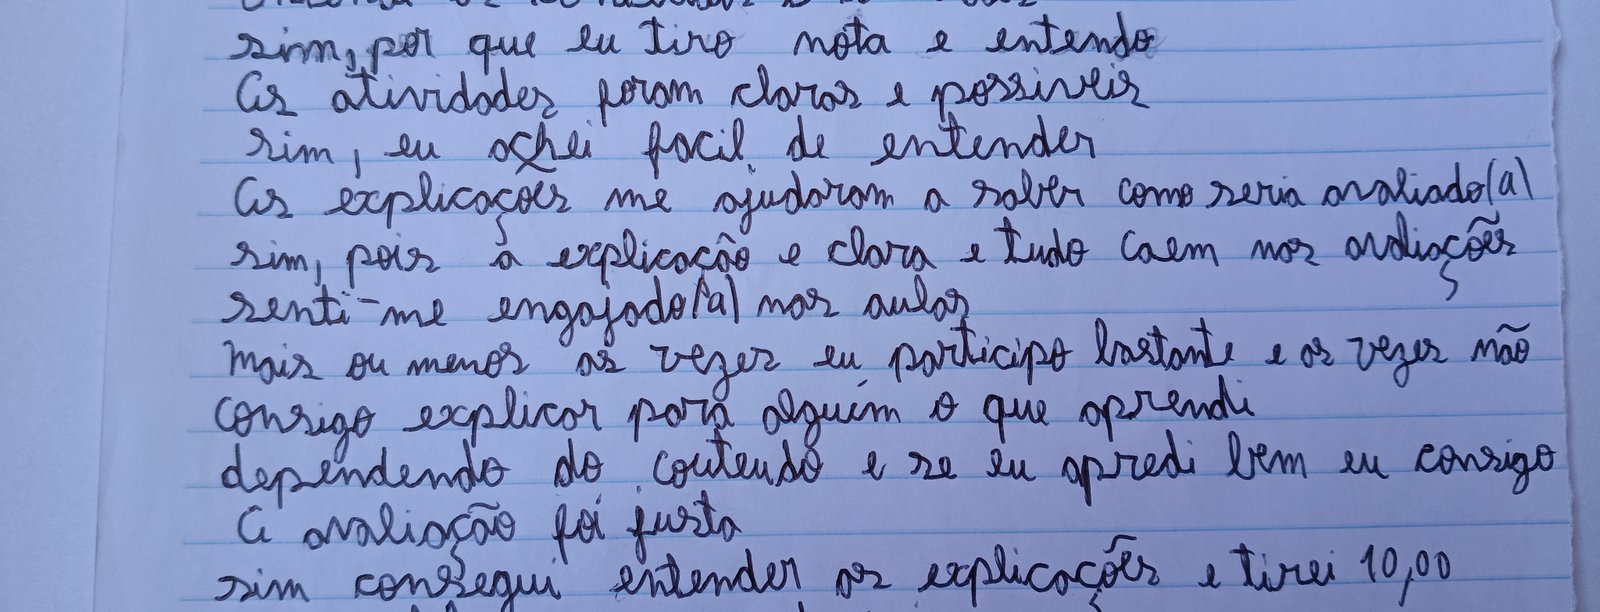 sim, por que eu tiro nota e entendo
As atividades foram claras e possiveis
sim, eu achei facil de entender
As explicações me ajudaram a saber como seria avaliado(a)
sim, pois a explicação e clara e tudo caem nas avaliações
senti-me engajado(a) nas aulas
Mais ou menos as vezes eu participo bastante e as vezes não
Consigo explicar para alguém o que aprendi
dependendo do conteudo e se eu apredi bem eu consigo
A avaliação foi justa
sim consegui entender as explicações e tirei 10,00